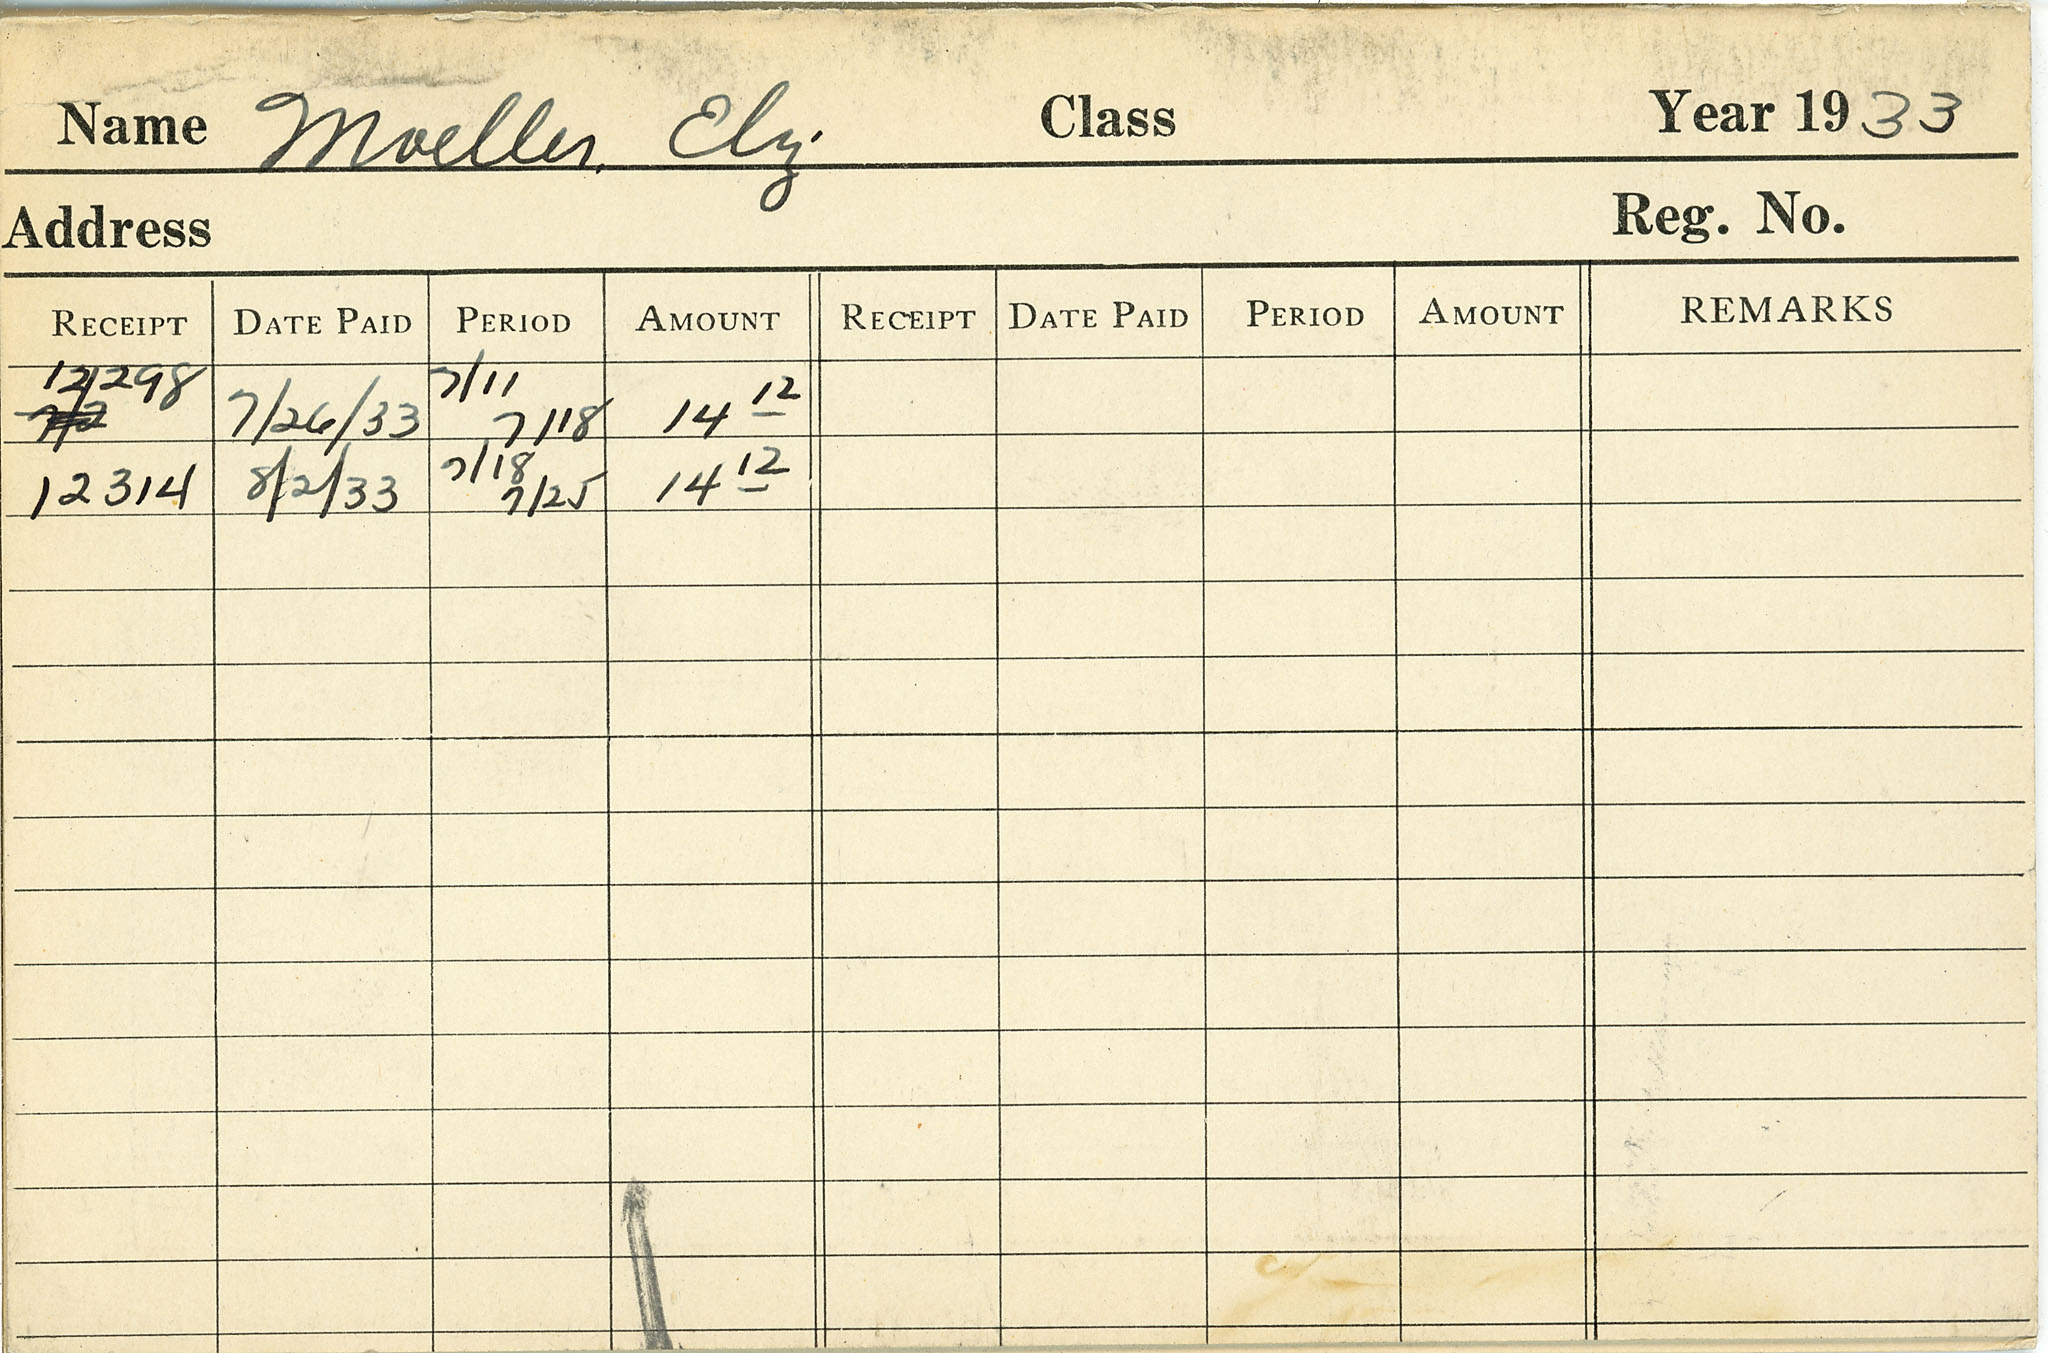 Name Moeller, Eliz. Class Year 1933
Address Reg. No.
RECEIPT DATE PAID PERIOD AMOUNT RECEIPT DATE PAID PERIOD AMOUNT REMARKS
12298 7/26/33 7/11 7/18 14 12
12314 8/2/33 7/18 7/25 14 12